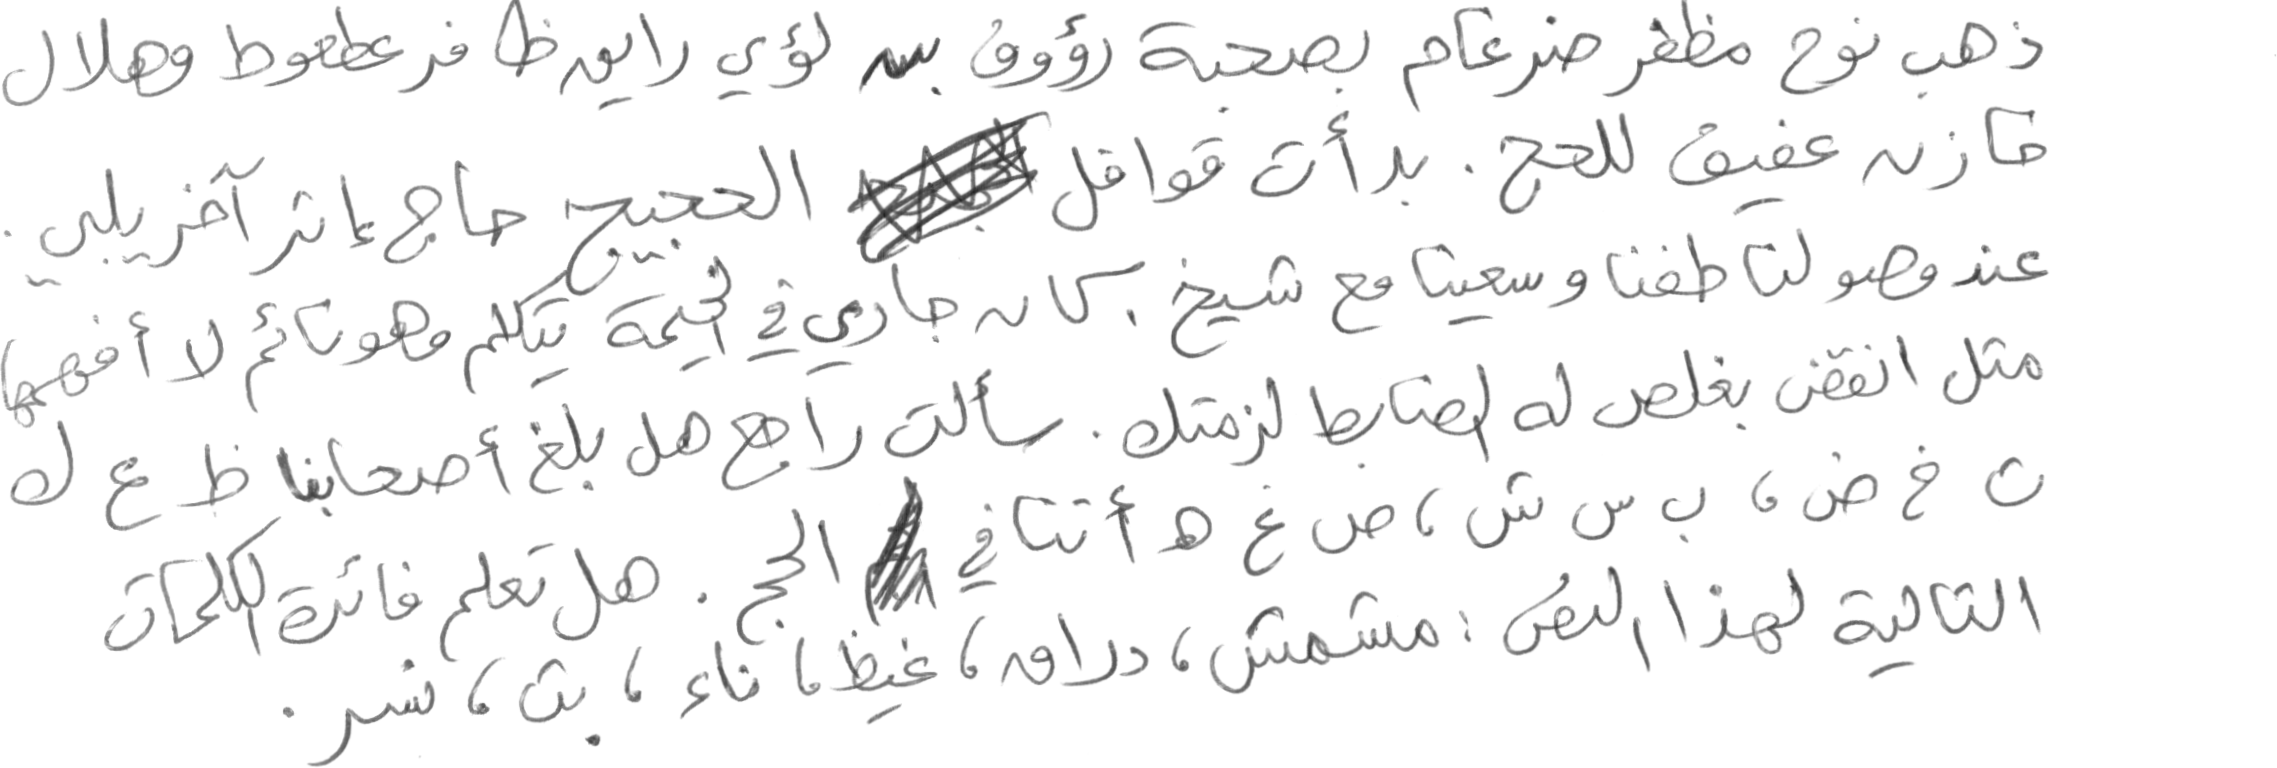 ذهب نوح مظفر ضرغام بصحبة رؤوف بن لؤي رايق ظافر عطعوط وهلال
خازن عفيف للحج. بدأت قوافل الحجيج حاج إثر آخر يلبي.
عند وصولنا طفنا وسعينا مع شيخ. كان جاري في الخيمة يتكلم وهو نائم لا أفهمها
مثل انقض بغلص له لضابط لزمتك. سألت راجح هل بلغ أصحابنا ظ ع ك
ث خ ض، ب س ش، ص غ ه أثنا في الحج. هل تعلم فائدة الكلمات
التالية لهذا النص: مشمش، دراق، غيظ، ناء، بث، شر.